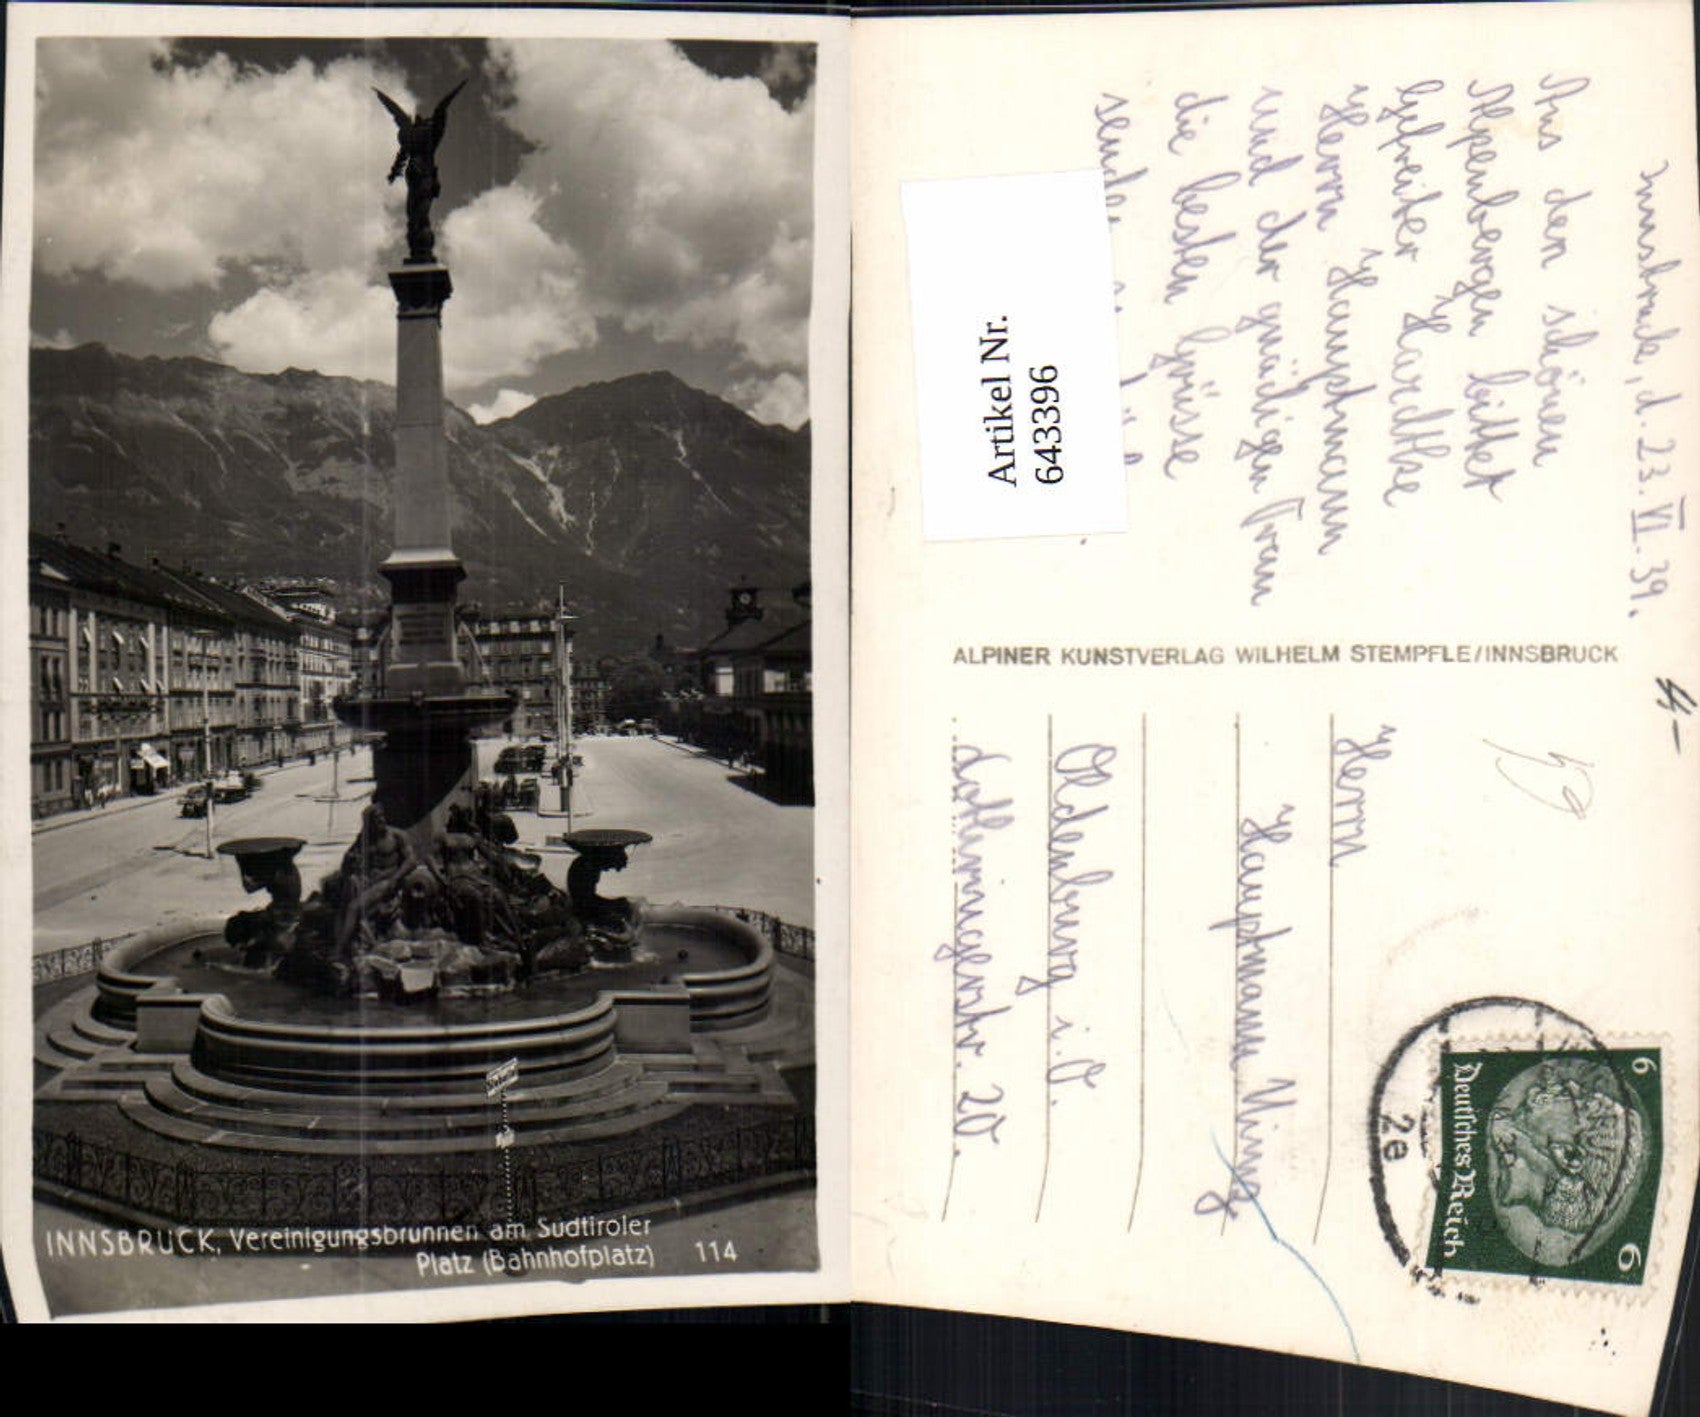 INNSBRUCK, Vereinigungsbrunnen am Südtiroler
Platz (Bahnhofplatz) 114
Innsbruck, d. 23. VI. 39.
Aus den schönen
Alpenbergen bittet
Gefreiter Hardtke
Herrn Hauptmann
und der gnädigen Frau
die besten Grüsse
senden
Artikel Nr.
643396
ALPINER KUNSTVERLAG WILHELM STEMPFLE/INNSBRUCK
4-
Herrn
Hauptmann
Oldenburg i. O.
20.
Deutsches Reich
6
6
2e